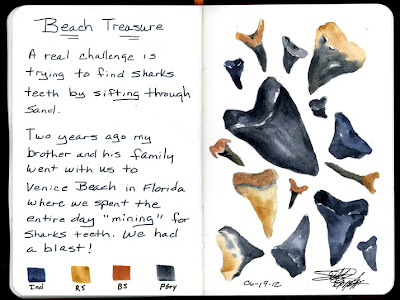 Beach Treasure
A real challenge is
trying to find sharks
teeth by sifting through
sand.
Two years ago my
brother and his family
went with us to
Venice Beach in Florida
where we spent the
entire day "mining" for
sharks teeth. We had
a blast!
Ind RS BS PGry
06-19-12